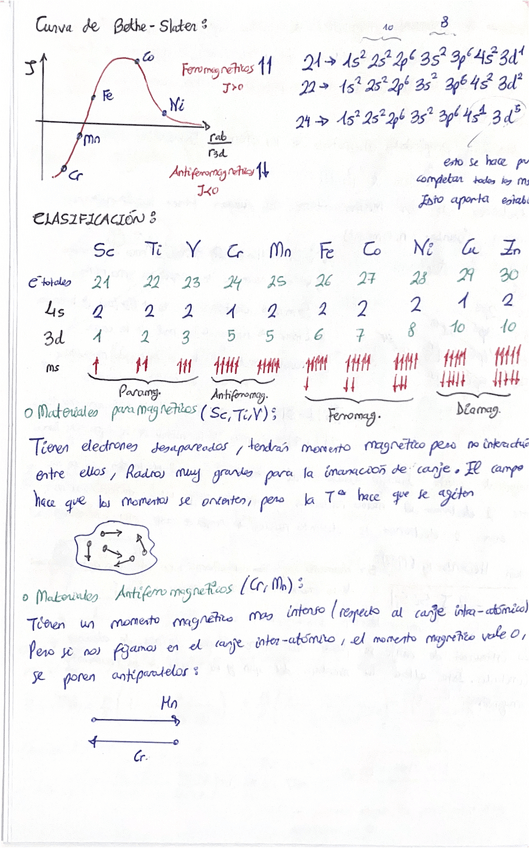 Curva de Bethe-Slater:
10 8
21 → 1s² 2s² 2p⁶ 3s² 3p⁶ 4s² 3d¹
22 → 1s² 2s² 2p⁶ 3s² 3p⁶ 4s² 3d²
24 → 1s² 2s² 2p⁶ 3s² 3p⁶ 4s¹ 3d⁵
esto se hace
completar todos los ms
Esto aporta
J
Co
Ferromagnéticos ↑↑
J>0
Fe
Ni
Mn
rab
r3d
Cr
Antiferromagnéticos ↑↓
J<0
CLASIFICACIÓN:
Sc Ti V Cr Mn Fe Co Ni Cu Zn
e⁻ totales 21 22 23 24 25 26 27 28 29 30
4s 2 2 2 1 2 2 2 2 1 2
3d 1 2 3 5 5 6 7 8 10 10
ms
Paramag. Antiferromag. Ferromag. Diamag.
o Materiales paramagnéticos (Sc, Ti, V):
Tienen electrones desapareados, tendrán momento magnético pero no
entre ellos, Radios muy grandes para la imanación de canje. El campo
hace que los momentos se orienten, pero la Tª hace que se agiten
o Materiales Antiferromagnéticos (Cr, Mn):
Tienen un momento magnético mas intenso (respecto al canje intra-atómico)
Pero si nos fijamos en el canje inter-atómico, el momento magnético vale 0,
se ponen antiparalelos:
Mn
Cr.